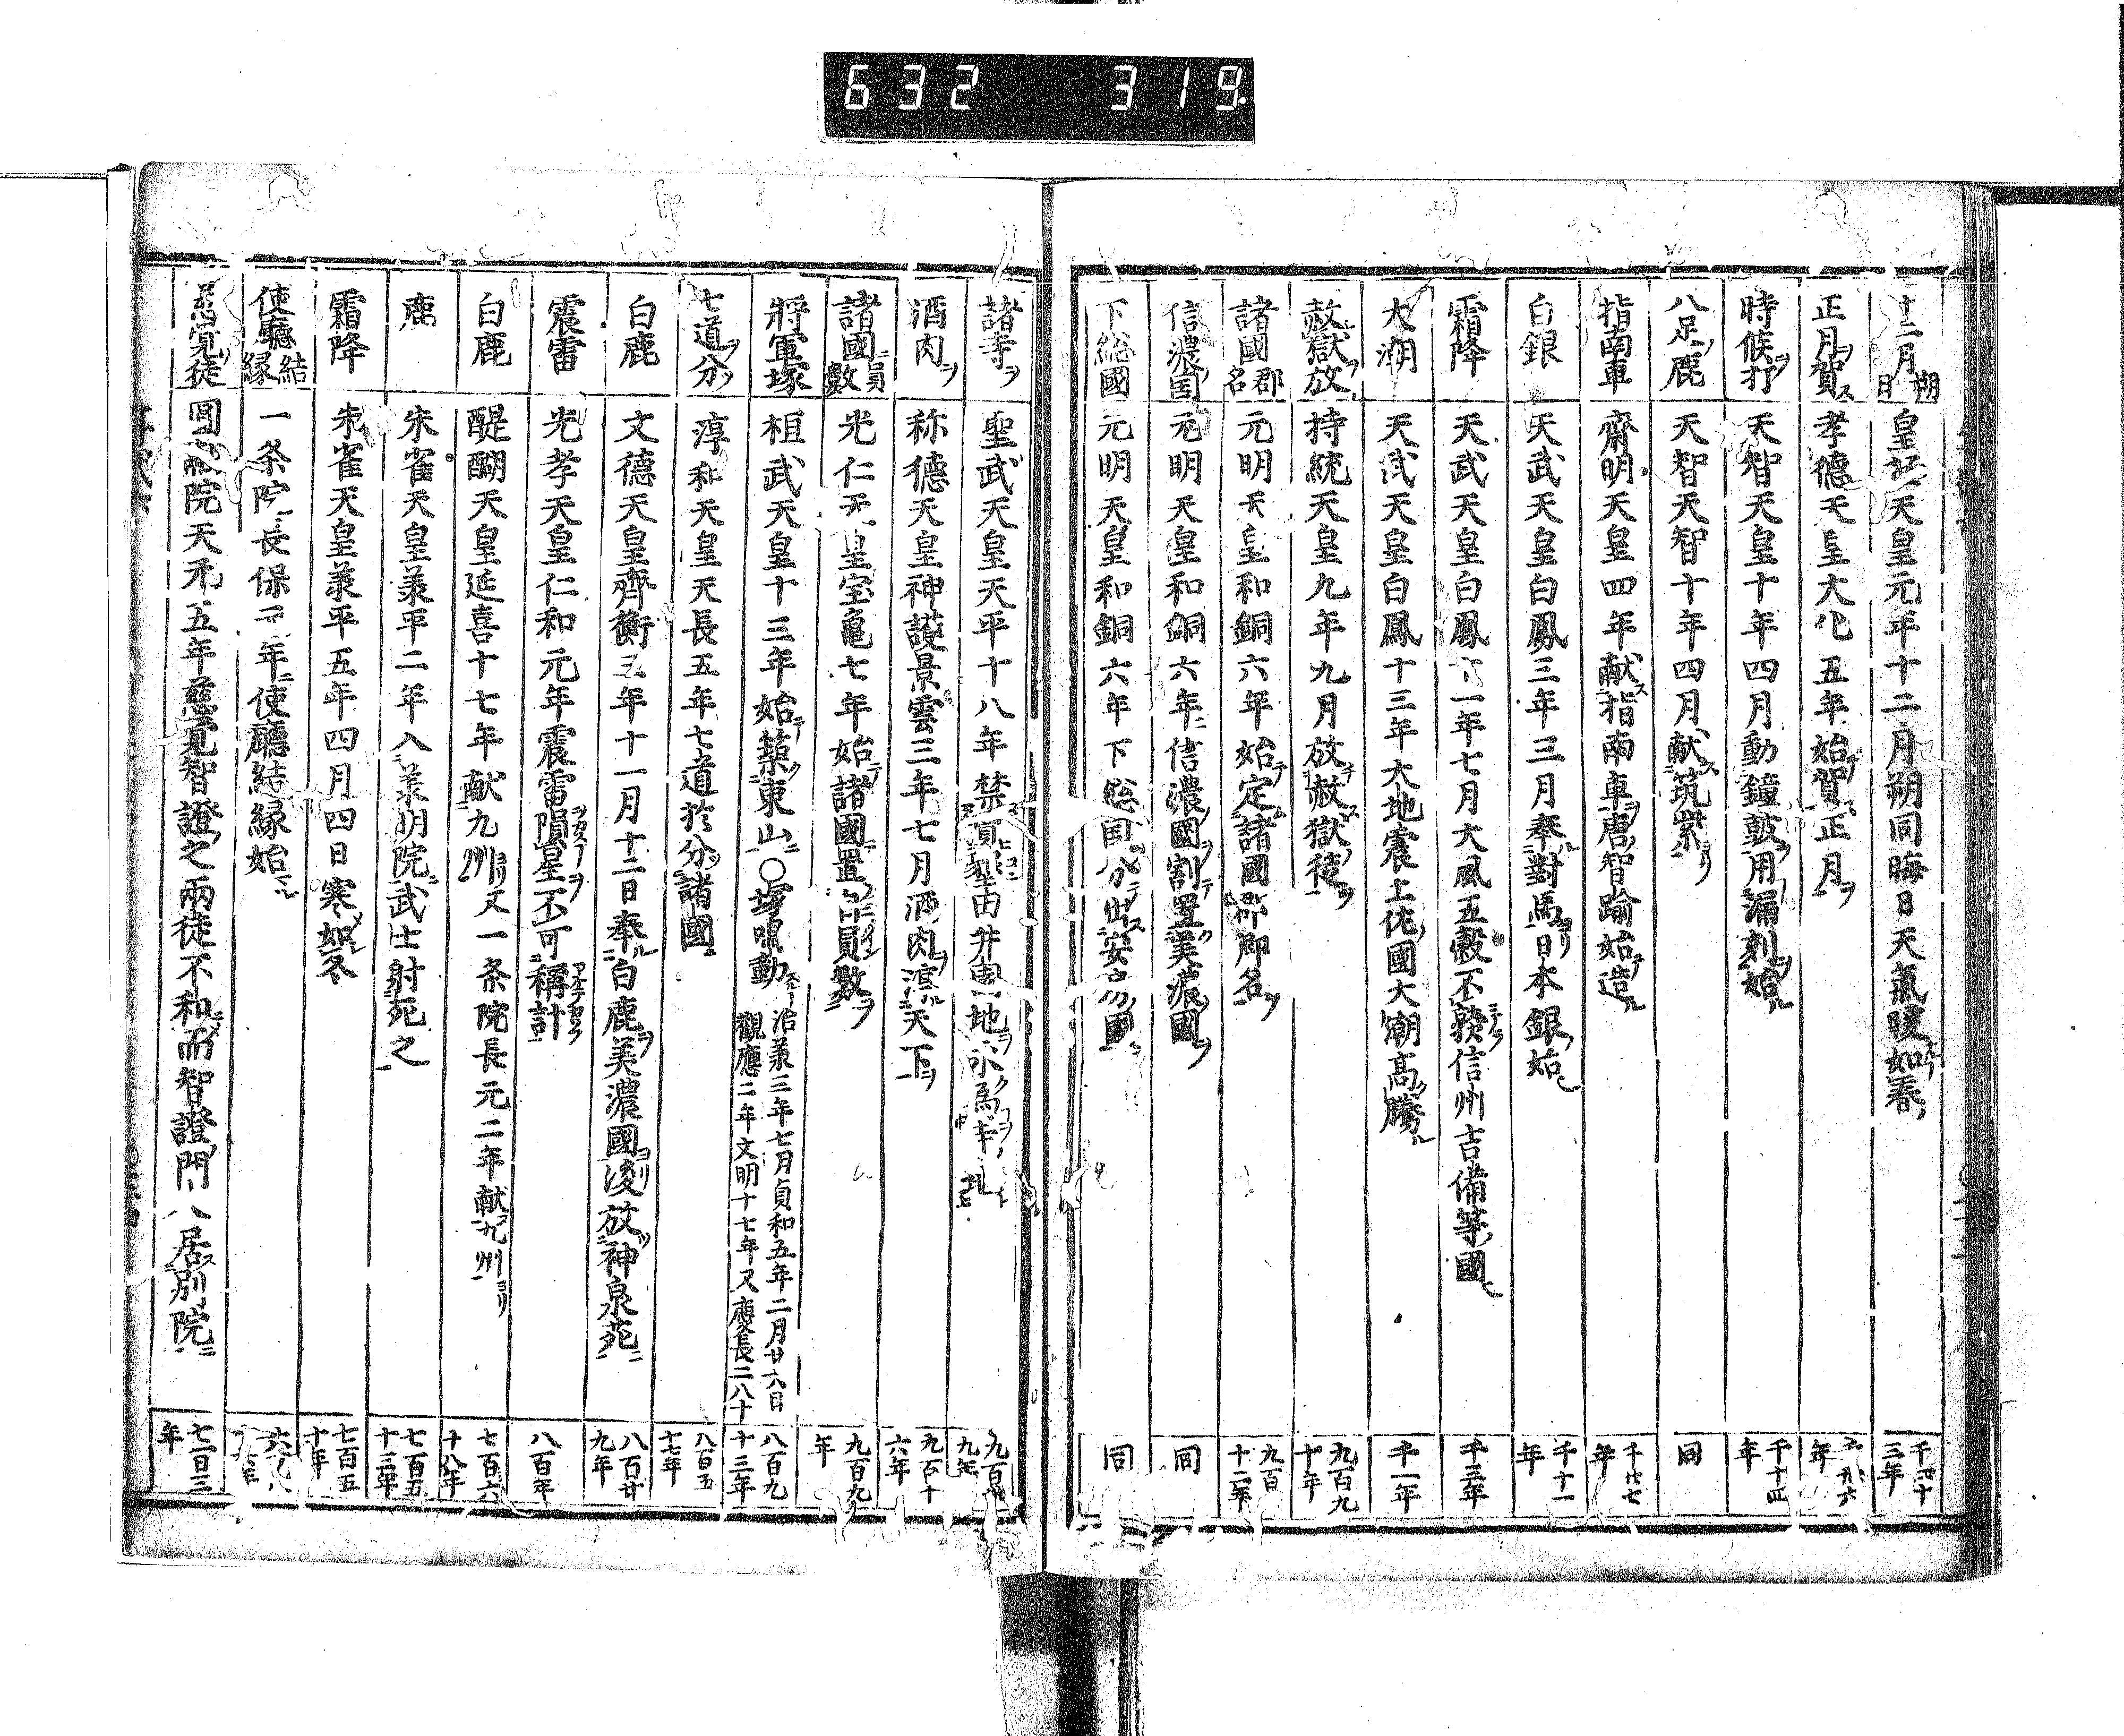 632 319.
十二月朔日 皇極天皇元年十二月朔同晦日天氣暖如春 千四十三年
正月賀 孝德天皇大化五年始賀正月 年
時候打 天智天皇十年四月動鐘鼓用漏刻始 千十四年
八足鹿 天智十年四月献筑紫 同
指南車 齊明天皇四年献指南車唐智踰始造 千廿七年
白銀 天武天皇白鳳三年三月奉對馬日本銀始 千十一年
霜降 天武天皇白鳳十一年七月大風五穀不熟信州吉備等國 千三年
大潮 天武天皇白鳳十三年大地震土佐國大潮高騰 千一年
赦獄放 持統天皇九年九月放赦獄徒 九百九十年
諸國郡名 元明天皇和銅六年始定諸國郡郷名 九百十二年
信濃国 元明天皇和銅六年信濃國割置美濃國 同
下総國 元明天皇和銅六年下総国分出安房國 同
諸寺 聖武天皇天平十八年禁買墾田并園地永為寺地 九百
酒肉 称德天皇神護景雲三年七月酒肉 天下 九百十六年
諸國員數 光仁天皇宝亀七年始諸國置 員數 九百九年
將軍塚 桓武天皇十三年始築東山○塚鳴動 治承三年七月貞和五年二月廿六日
觀應二年文明十七年又慶長二八十 八百九十三年
七道分 淳和天皇天長五年七道於分諸國 八百五十七年
白鹿 文德天皇齊衡三年十一月十二日奉白鹿美濃國後放神泉苑 八百廿九年
震雷 光孝天皇仁和元年震雷隕星不可稱計 八百年
白鹿 醍醐天皇延喜十七年献九州又一条院長元二年献九州 七百六十八年
鹿 朱雀天皇承平二年入承明院武士射死之 七百五十三年
霜降 朱雀天皇承平五年四月四日寒如冬 七百五十年
使聽結縁 一条院長保 年使廳結縁始 六百八 年
慈覚徒 圓融院天元五年慈覚智證之兩徒不和而智證門人居別院 七百三年